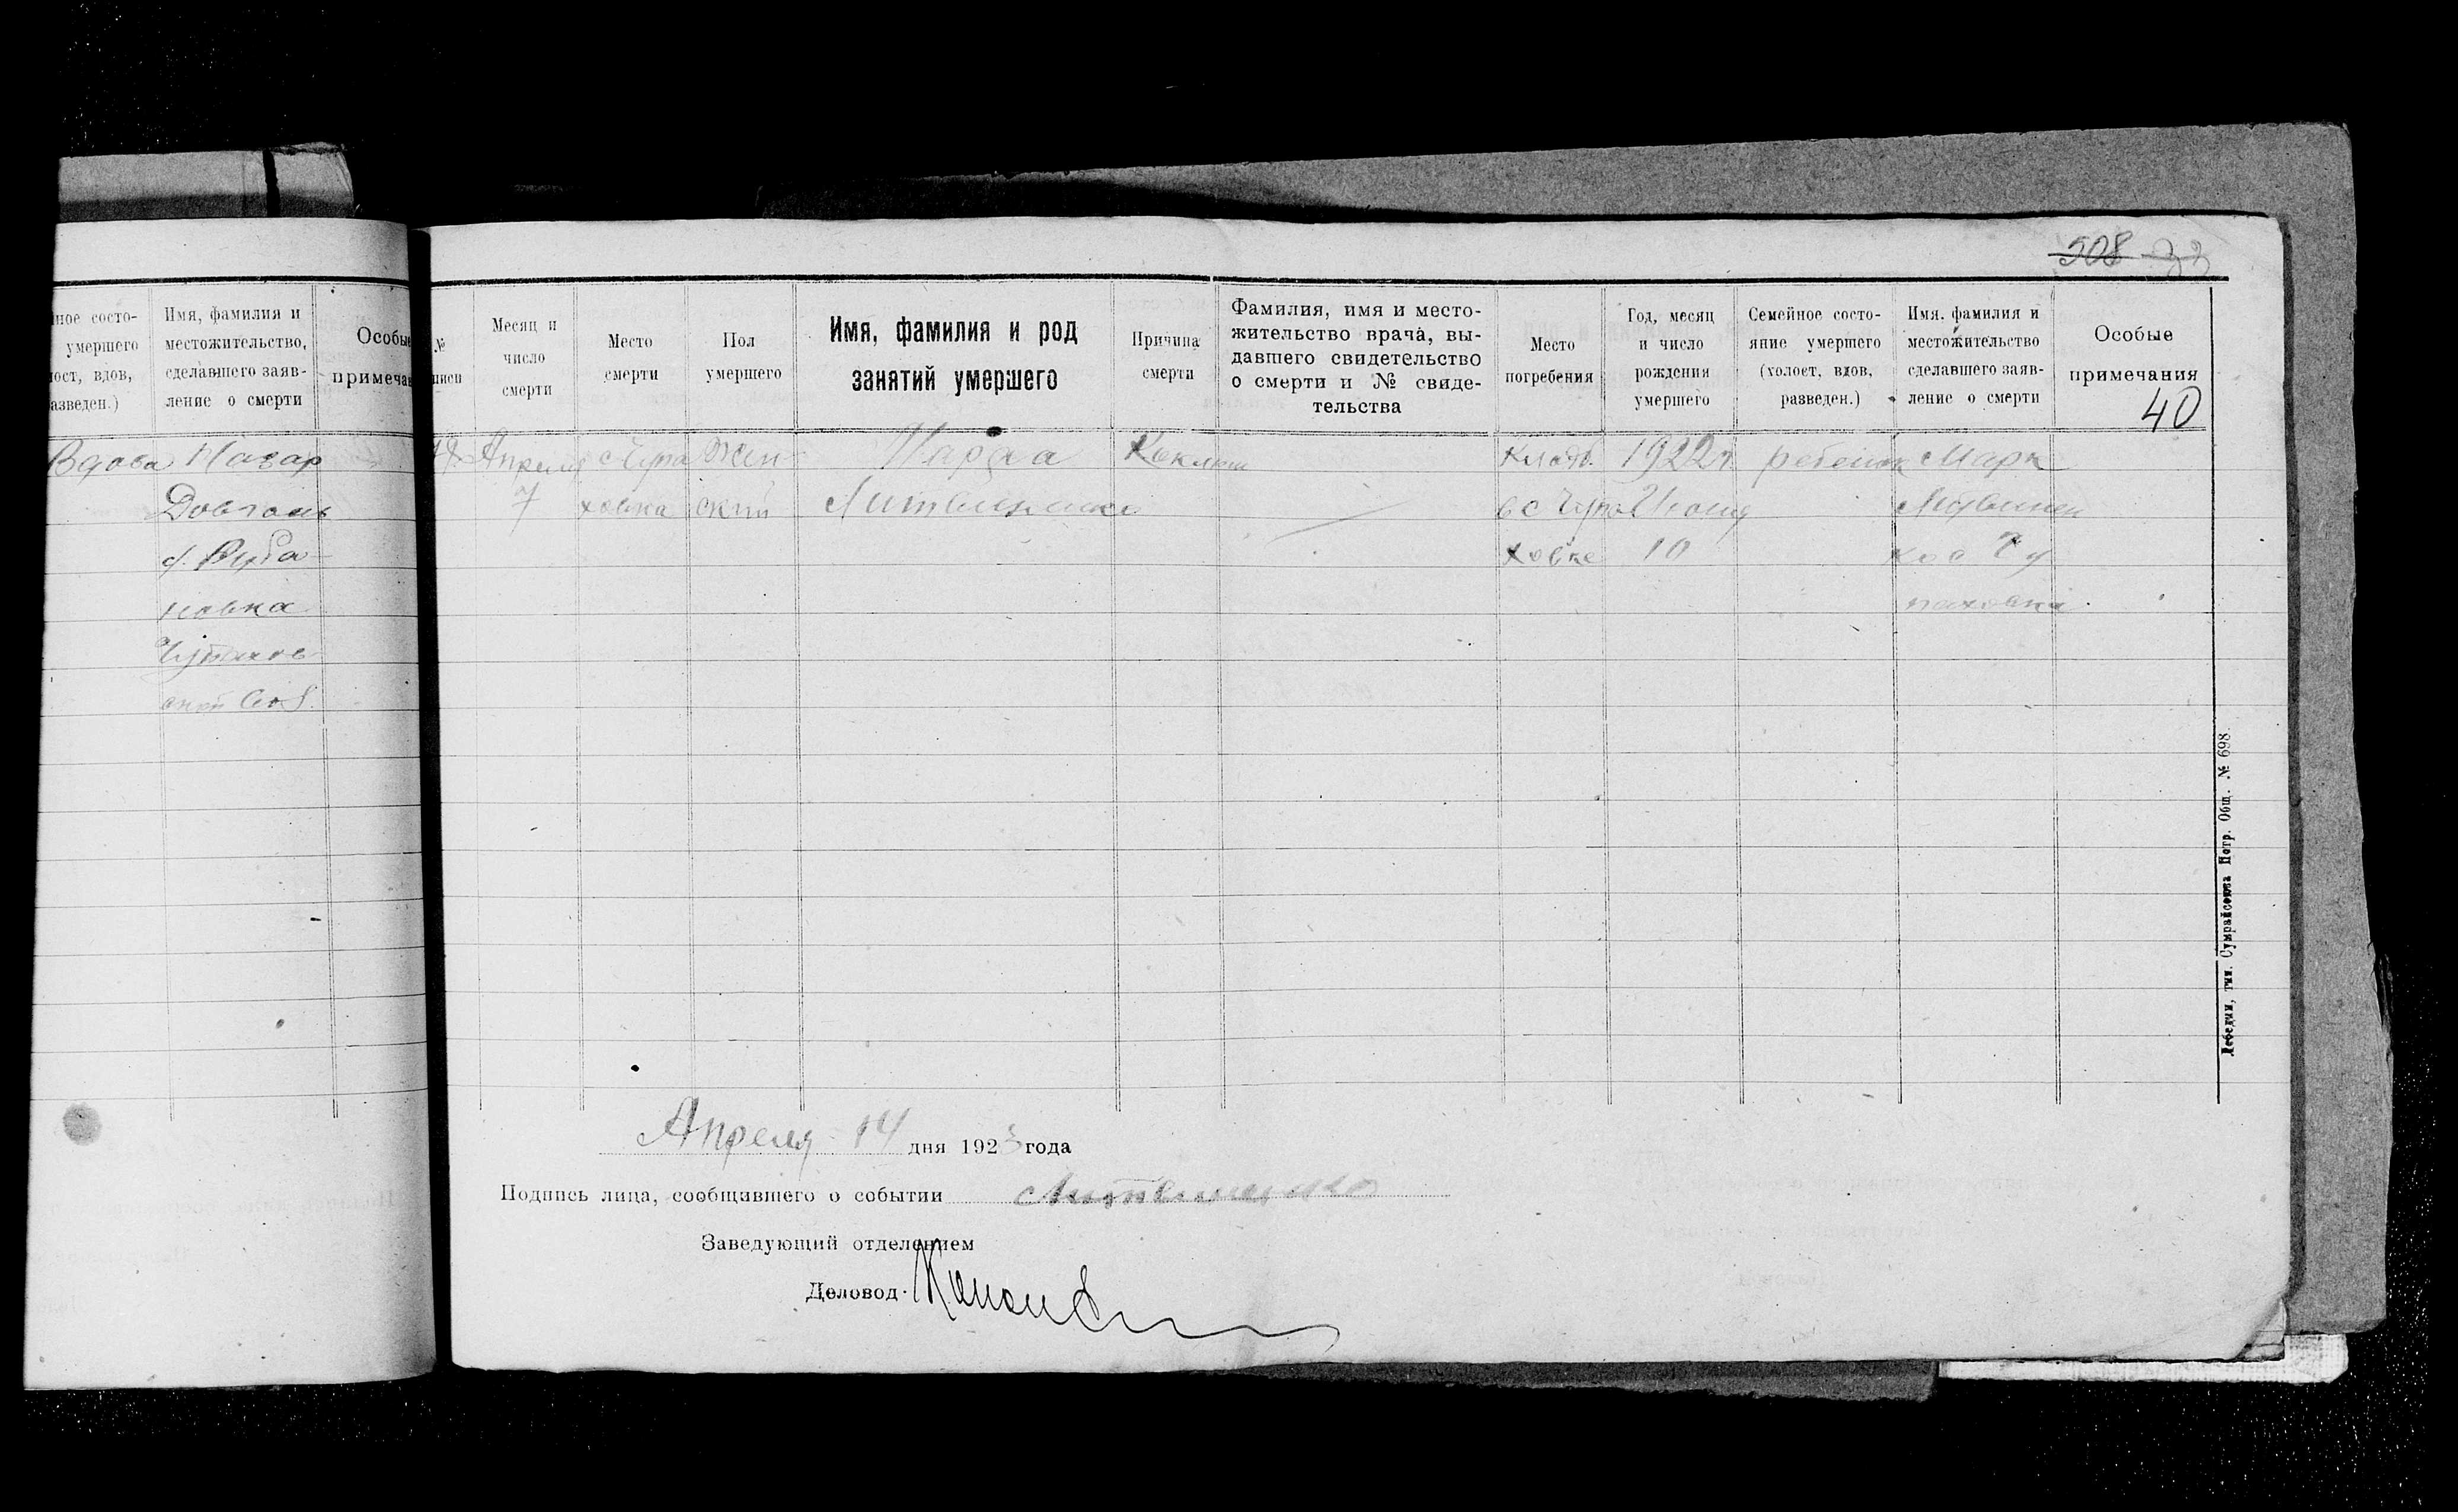 508
ное состо-
умершего
ост, вдов,
азведен.)
Имя, фамилия и
местожительство,
сделавшего заяв-
ление о смерти
Особые
примеча
Вдова
Назар
Довгань
новка
№
писи
Месяц и
число
смерти
Место
смерти
Пол
умершего
Имя, фамилия и род
занятий умершего
Причина
смерти
Фамилия, имя и место-
жительство врача, вы-
давшего свидетельство
о смерти и № свиде-
тельства
Место
погребения
Год, месяц
и число
рождения
умершего
Семейное состо-
яние умершего
(холост, вдов,
разведен.)
Имя, фамилия и
местожительство
сделавшего заяв-
ление о смерти
Особые
примечания
40
Апреля
7
с Чупа
ховка
Жен-
ский
Литвиненко
Коклюш
Кладб.
в с Чупа
ховке
1922 г.
10
ребенок
Марк
Литвинен
ко с Чу
паховка
Апреля 14 дня 1923 года
Подпись лица, сообщившего о событии Литвиненко
Заведующий отделением
Деловод.
Лебедин, тип. Сумрайсоюза Потр. Общ. № 698.